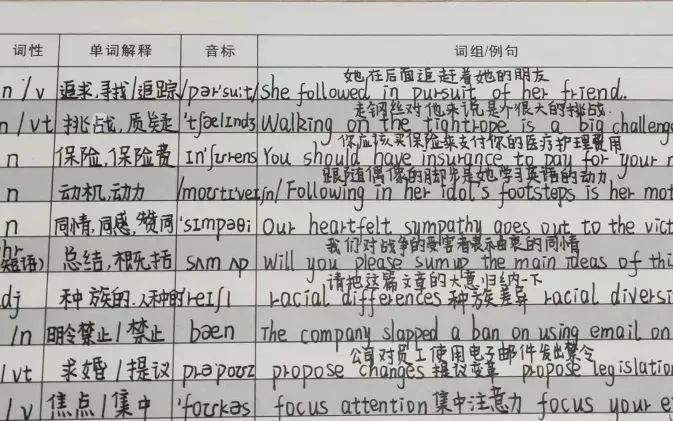 词性 单词解释 音标 词组/例句
她在后面追赶着她的朋友
n/v 追求,寻找/追踪 /pər'su:t/ She followed in pursuit of her friend.
走钢丝对他来说是个很大的挑战.
n/vt 挑战,质疑 'tʃælɪndʒ Walking on the tightrope is a big challenge
你应该买保险来支付你的医疗护理费用
n 保险,保险费 ɪn'ʃʊrəns You should have insurance to pay for your
跟随偶像的脚步是她学习英语的动力
n 动机,动力 /moʊtɪ'veɪʃn/ Following in her idol's footsteps is her mot
n 同情,同感,赞同 'sɪmpəθi Our heartfelt sympathy goes out to the vict
我们对战争的受害者表示由衷的同情
短语) 总结,概括 sʌm ʌp Will you please sum up the main ideas of thi
请把这篇文章的大意归纳一下
dj 种族的,人种的 reɪʃl racial differences 种族差异 racial diversi
/n 明令禁止/禁止 bæn The company slapped a ban on using email on
公司对员工使用电子邮件发出禁令
/vt 求婚/提议 prəpoʊz propose changes 提议变革 propose legislation
/v 焦点/集中 'foʊkəs focus attention 集中注意力 focus your e